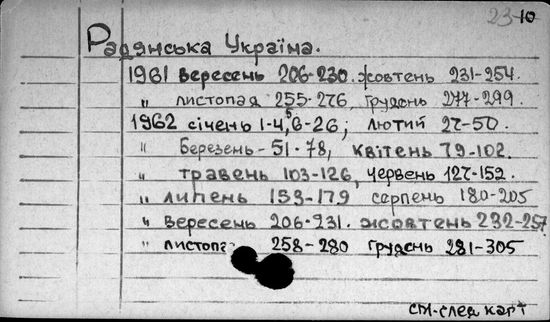 23-10
Радянська Україна.
1961 вересень 206-230. жовтень 231-254.
" листопад 255-276, грудень 277-299.
1962 січень 1-4,5,6-26; лютий 27-50.
" березень-51-78, квітень 79-102.
" травень 103-126, червень 127-152.
" липень 153-179 серпень 180-205
" вересень 206-231. жовтень 232-257
" листопа 258-280 грудень 281-305
см-след карт